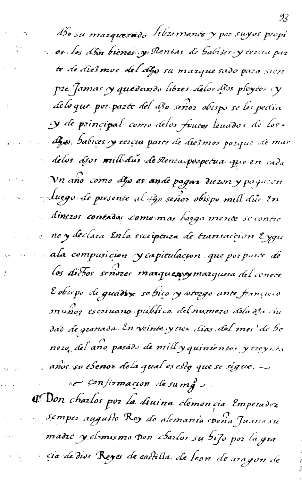 93
dho su marquesado libremente y por suyos propi
os los dhos bienes y Rentas de habices y tercia par
te de diezmos del dho su marquesado para siem
pre Jamas y quedando libres delos dhos pleytos y
delo que por parte del dho señor obispo se les pedia
y de principal como delos frutos levados de los
dhos habices y tercia parte de diezmos porque de mas
delos dhos mill ds de Renta perpetua que en cada
Un año como dho es ande pagar dieron y paguen
luego de presente al dho señor obispo mill ds En
dineros contados como mas largamente se contie
ne y declara En la escriptura de transacion E ygu
ala composicion y capitulacion que por parte de
los dichos señores marques y marquesa del cenete
E obispo de guadix se hizo y otorgo ante francisco
muñoz escrivano publico del numero de la dha ciu
dad de granada En veinte y tres dias del mes de he
nero del año pasado de mill y quinientos y treynta
años su thenor de la qual es este que se sigue
confirmacion de su mgd
Don charlos por la divina clemencia Emperador
semper augusto Rey de alemania doña Juana su
madre y el mismo Don charlos su hijo por la gra
cia de dios Reyes de castilla de leon de aragon de